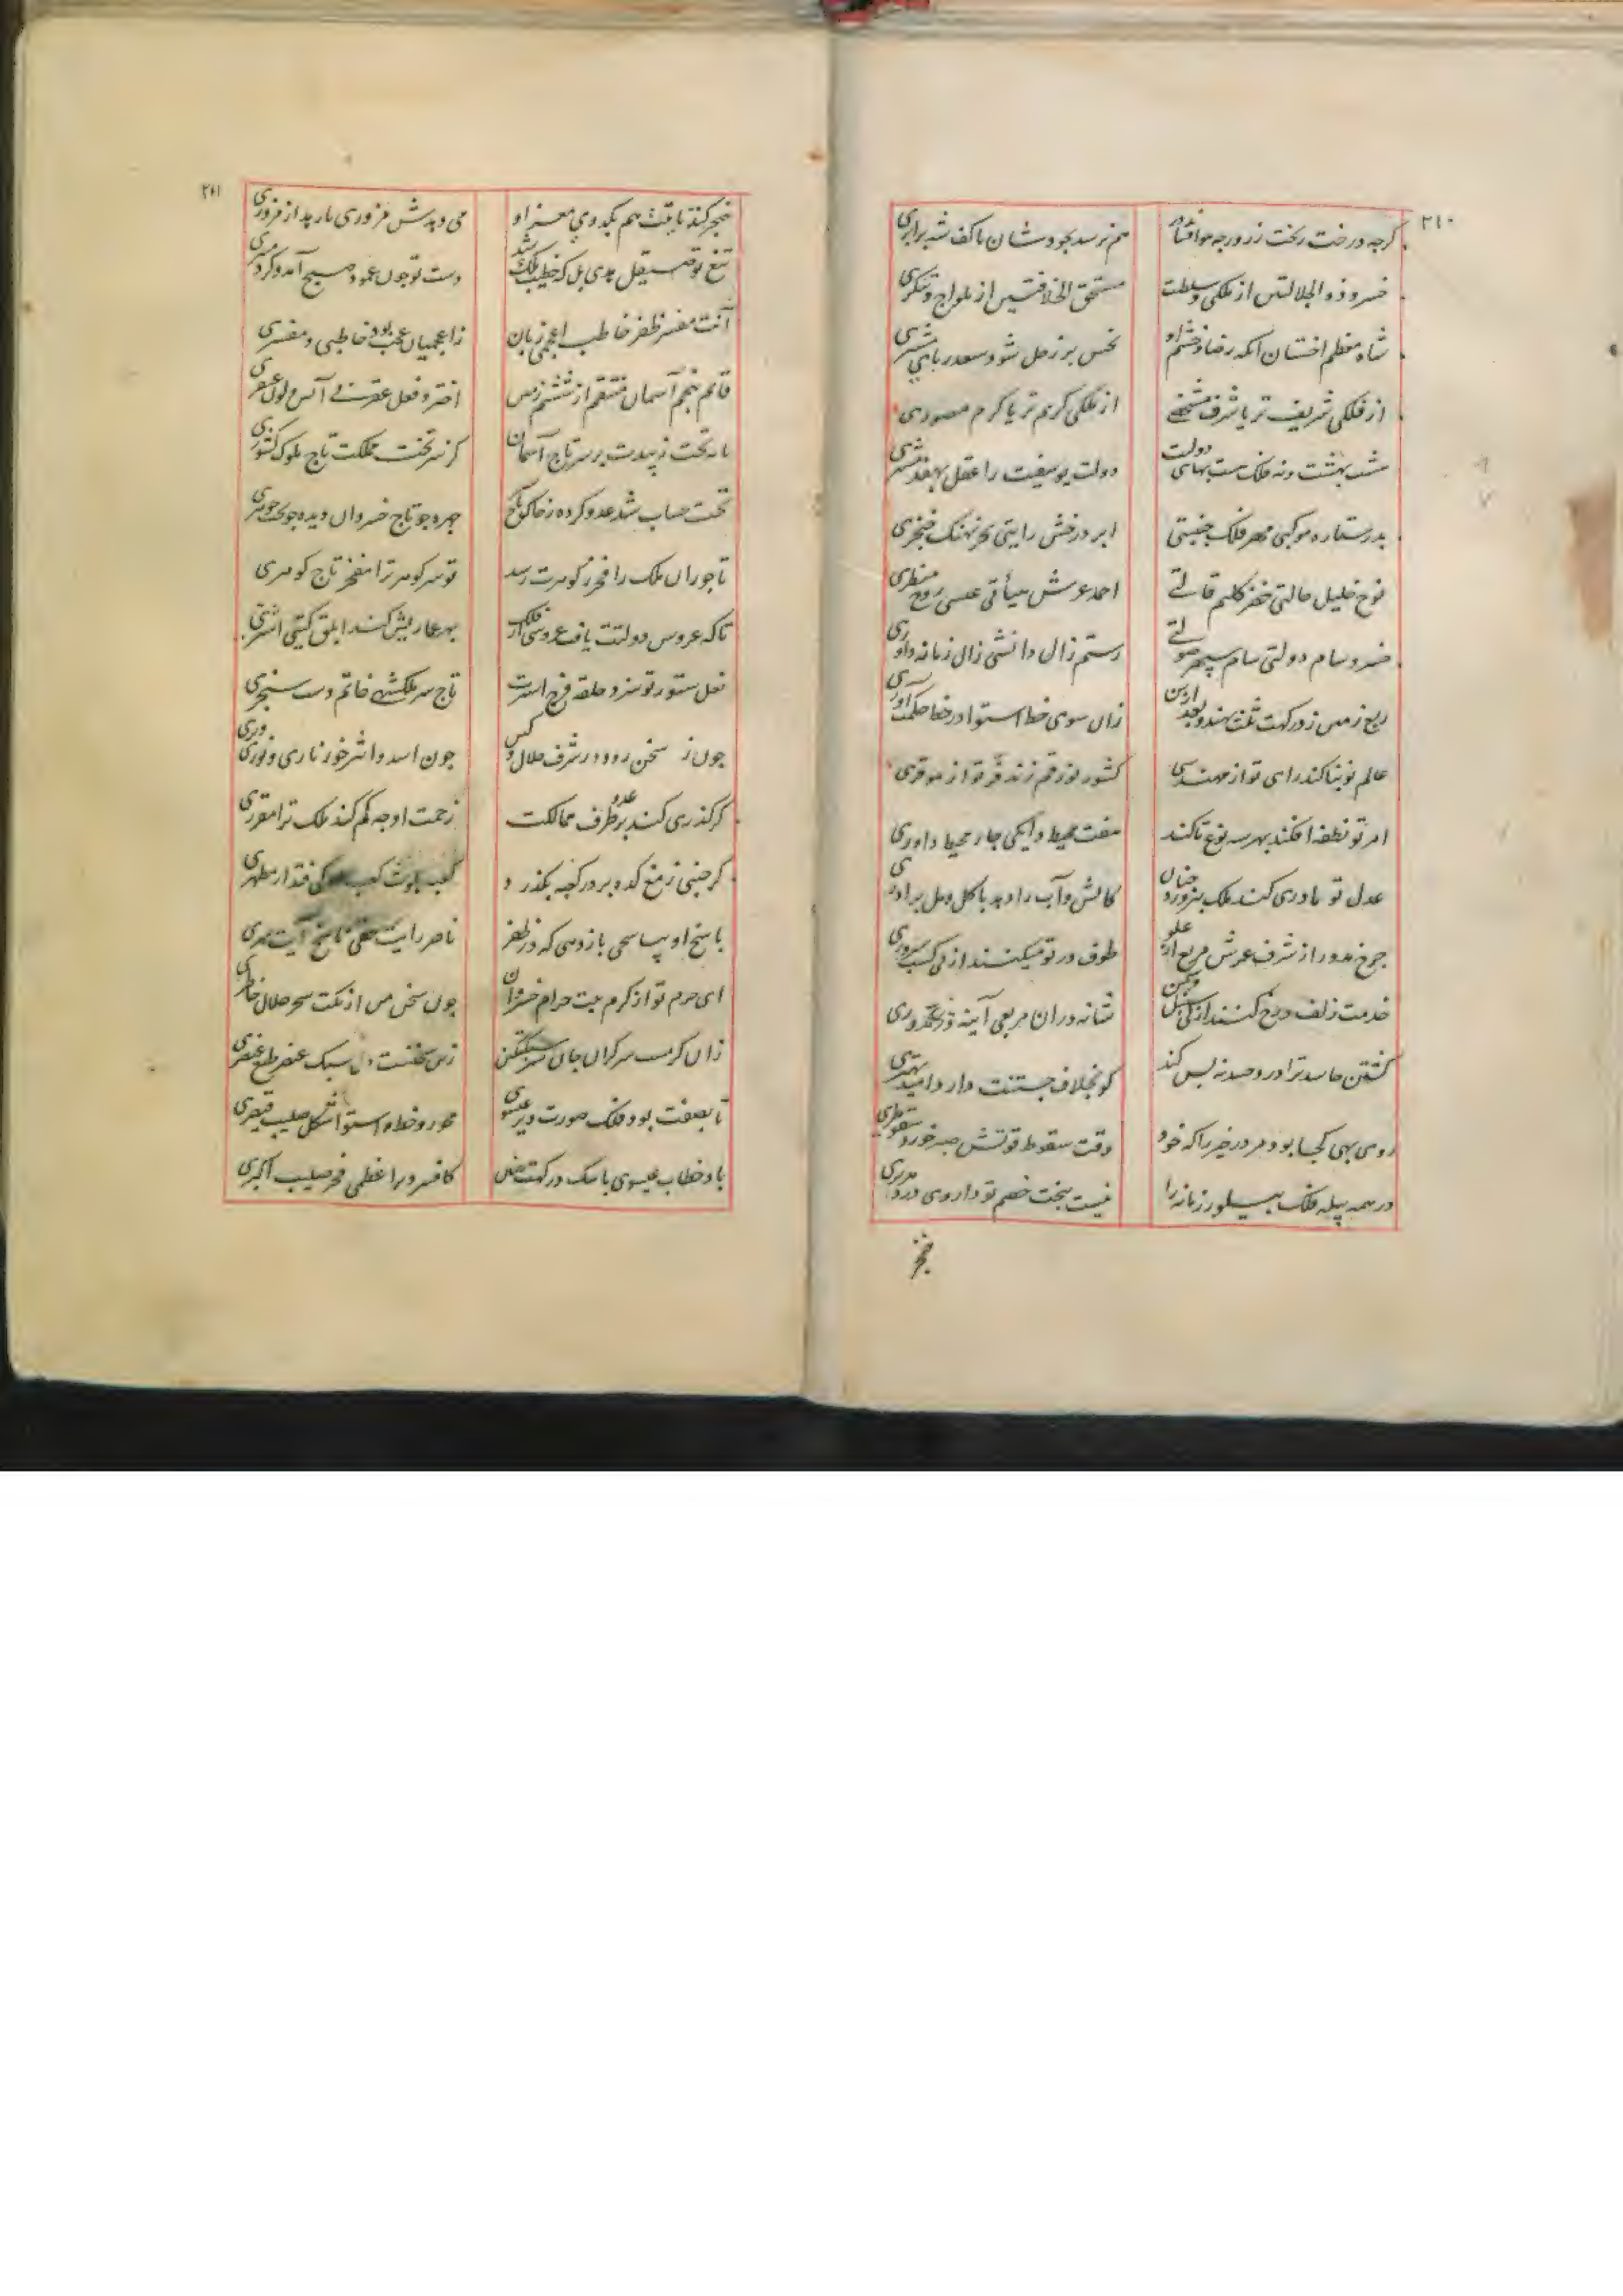 ۲۱۰
کرچه درخت ریخت زر ورچه هوا فشاند هم نرسد بجودشان با کف شه برابری
خسرو ذو الجلالتین از ملکی و سلطنت مستحق الخلافتین از یلواج و تنکری
شاه معظم اخستان انکه رضا و خشم او نحس بر زحل شود سعد ربای مشتری
از فلکی شریف تر یا شرف مشخصی از ملکی کریم تر یا کرم مصوری
هشت بهشت ونه فلک هست بهای دولت دولت یوسفیت را عقل بهفده مشتری
بدر ستاره موکبی مهر فلک جنیبتی ابر درخش رایتی بحر نهنک خنجری
نوح خلیل حالتی خضر کلیم قالتی احمد عرش هیأتی عیسی روح منظری
خسرو سام دولتی سام سپهر صولتی رستم زال دانشی زال زمانه داوری
ربع زمین ز درکهت ثلث نهند و بعد ازین زان سوی خط استوا در خط حکمت اوری
عالم نو بنا کند رای تو از مهندسی کشور نو رقم زند فر تو از موقری
امر تو نطفه افکند بهر سه نوع تا کند هفت محیط دایکی چار محیط داوری
عدل تو مادری کند ملک بپرورد چنان کاتش و آب را دهد با کل و مل برادری
چرخ مدور از شرف عرش مربع از علو طوف در تو میکنند از پی کسب سروری
خدمت زلف و رخ کنند از پی شانه دران مربعی آینه در مدوری
کشتن حاسد ترا درد حسد نه بس کند کو بخلاف جستنت دارد امید بهتری
روی بهی کجا بود مرد زحیر را که خود وقت سقوط قوتش صبر خورد سقوطری
در همه پیله فلک پیله ور زمانه را نیست ببخت خصم تو داروی درد مدبری
خنجر
۲۱۱
خنجر کند نابت هم بکدوی مغز او می دهدش مزوری بار پد از مزوری
تیغ تو صیقل هدی بل که خطیب ملک شد دست تو چون عمود صبح آمد و کرد منبری
آنت مفسر ظفر خاطب اعجمی زبان زاعجمیان عجب بود خاطبی و مفسری
قائم پنجم آسمان منتقم از ششم زمین
پایه تخت زیبدت بر سر تاج آسمان کز سر تخت مملکت تاج ملوک کشوری
تخت حساب شد عدو کرده ز خاک تاج چهره چو تاج خسروان دیده چو تخت جوهری
تاجوران ملک را فخر ز کوهرت رسد تو سر کوهر ترا مفخر تاج کوهری
تا که عروس دولتت یافت عماریش کنند ابلق کیتی استری
نعل ستور تو سزد حلقه فرج استرت تاج سر ملکشهی خاتم دست سنجری
چون ز سخن رود در شرف جلال و کین چون اسد و اثیر خور ناری و نوری
کر کذری کند عدو بر طرف ممالکت زحمت او چه کم کند ملک ترا مقرری
کر جنبی ز مغ کده بر در کعبه بکذرد کعبه بلوث کعب کی فتد از مطهری
پاسخ او بپاس حق باز دهی که در ظفر ناصر رایت حقی ناسخ آیت شری
ای حرم تو از کرم بیت حرام خسروان چون سخن من از نکت سحر حلال خاطری
زان کرمست سر کران جان سبکتکین زین سخنست دل سبک عنصر طبع عنصری
تا بصفت بود فلک صورت دیر عیسوی محور و خط استوا شکل صلیب قیصری
باد خطاب عیسوی با سک درکهت چنین کافسر دیر اعظمی فخر صلیب اکبری